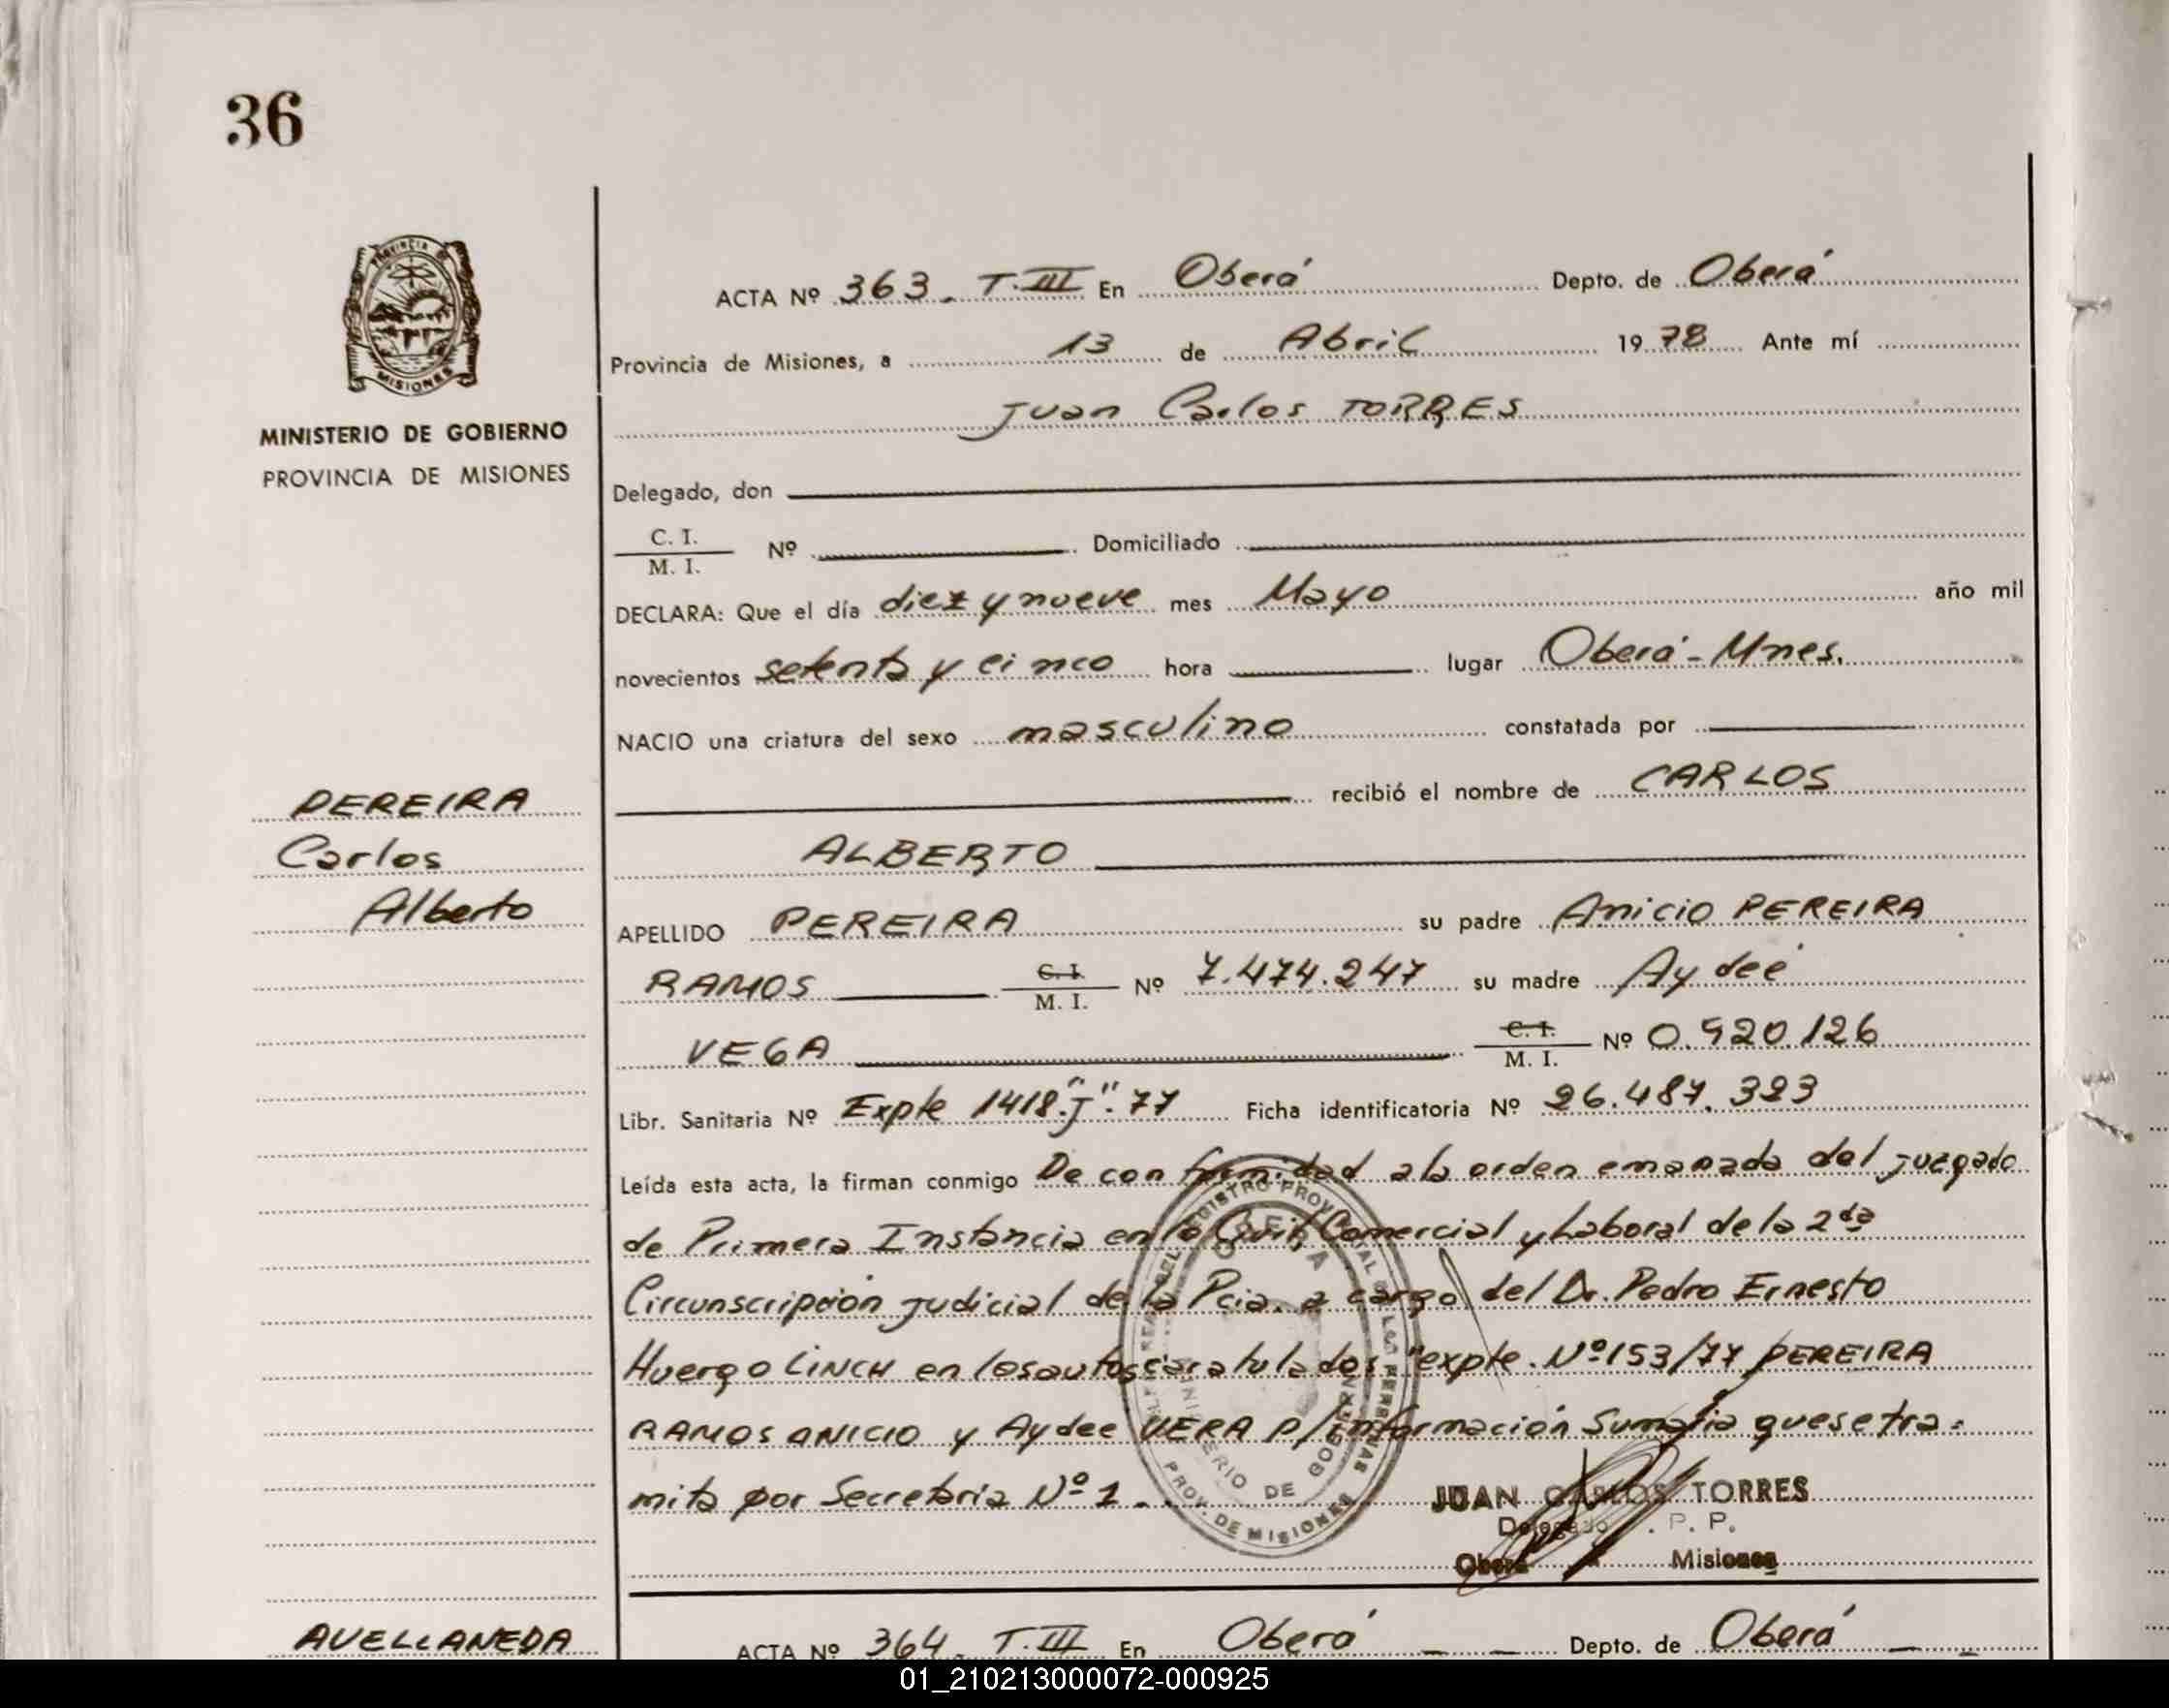 36
PROVINCIA
MISIONES
MINISTERIO DE GOBIERNO
PROVINCIA DE MISIONES
PEREIRA
Carlos
Alberto
ACTA Nº 363. T.III En Oberá Depto. de Oberá
Provincia de Misiones, a 13 de Abril 1978 Ante mí
Juan Carlos TORRES
Delegado, don
C. I.
M. I. Nº Domiciliado
DECLARA: Que el día diez y nueve mes Mayo año mil
novecientos setenta y cinco hora lugar Oberá - Mnes.
NACIO una criatura del sexo masculino constatada por
recibió el nombre de CARLOS
ALBERTO
APELLIDO PEREIRA su padre Anicio PEREIRA
RAMOS C. I. M. I. Nº 7.474.247 su madre Aydeé
VEGA C. I. M. I. Nº 0.920.126
Libr. Sanitaria Nº Expte 1418."J".77 Ficha identificatoria Nº 26.487.323
Leída esta acta, la firman conmigo De conformidad a la orden emanada del juzgado
de Primera Instancia en lo Civil, Comercial y Laboral de la 2da
Circunscripción judicial de la Pcia. a cargo del Dr. Pedro Ernesto
Huergo LINCH en los autos caratulados "expte. Nº 153/77 PEREIRA
RAMOS ANICIO y Aydeé VERA p/Información Sumaria que se tra=
mita por Secretaria Nº 1.
JUAN CARLOS TORRES
Delegado . P. P.
Oberá Misiones
REGISTRO PROVINCIAL DE LAS PERSONAS
OBERA
MINISTERIO DE GOBIERNO
PROV. DE MISIONES
AVELLANEDA
ACTA Nº 364. T.III En Oberá Depto. de Oberá
01_210213000072-000925